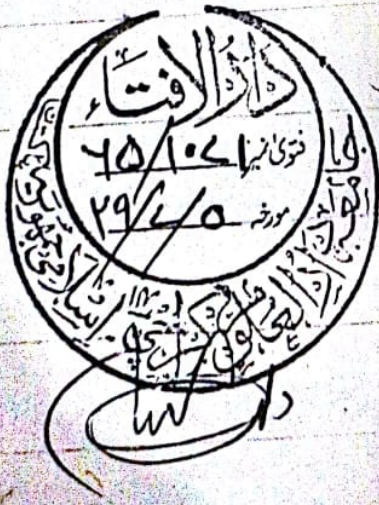 دَارُالافتَاء
فتویٰ نمبر ۶۵/۱۰۷۱
مورخہ ۲۹/۷/۵
جامعہ دارالعلوم کراچی ۱۴